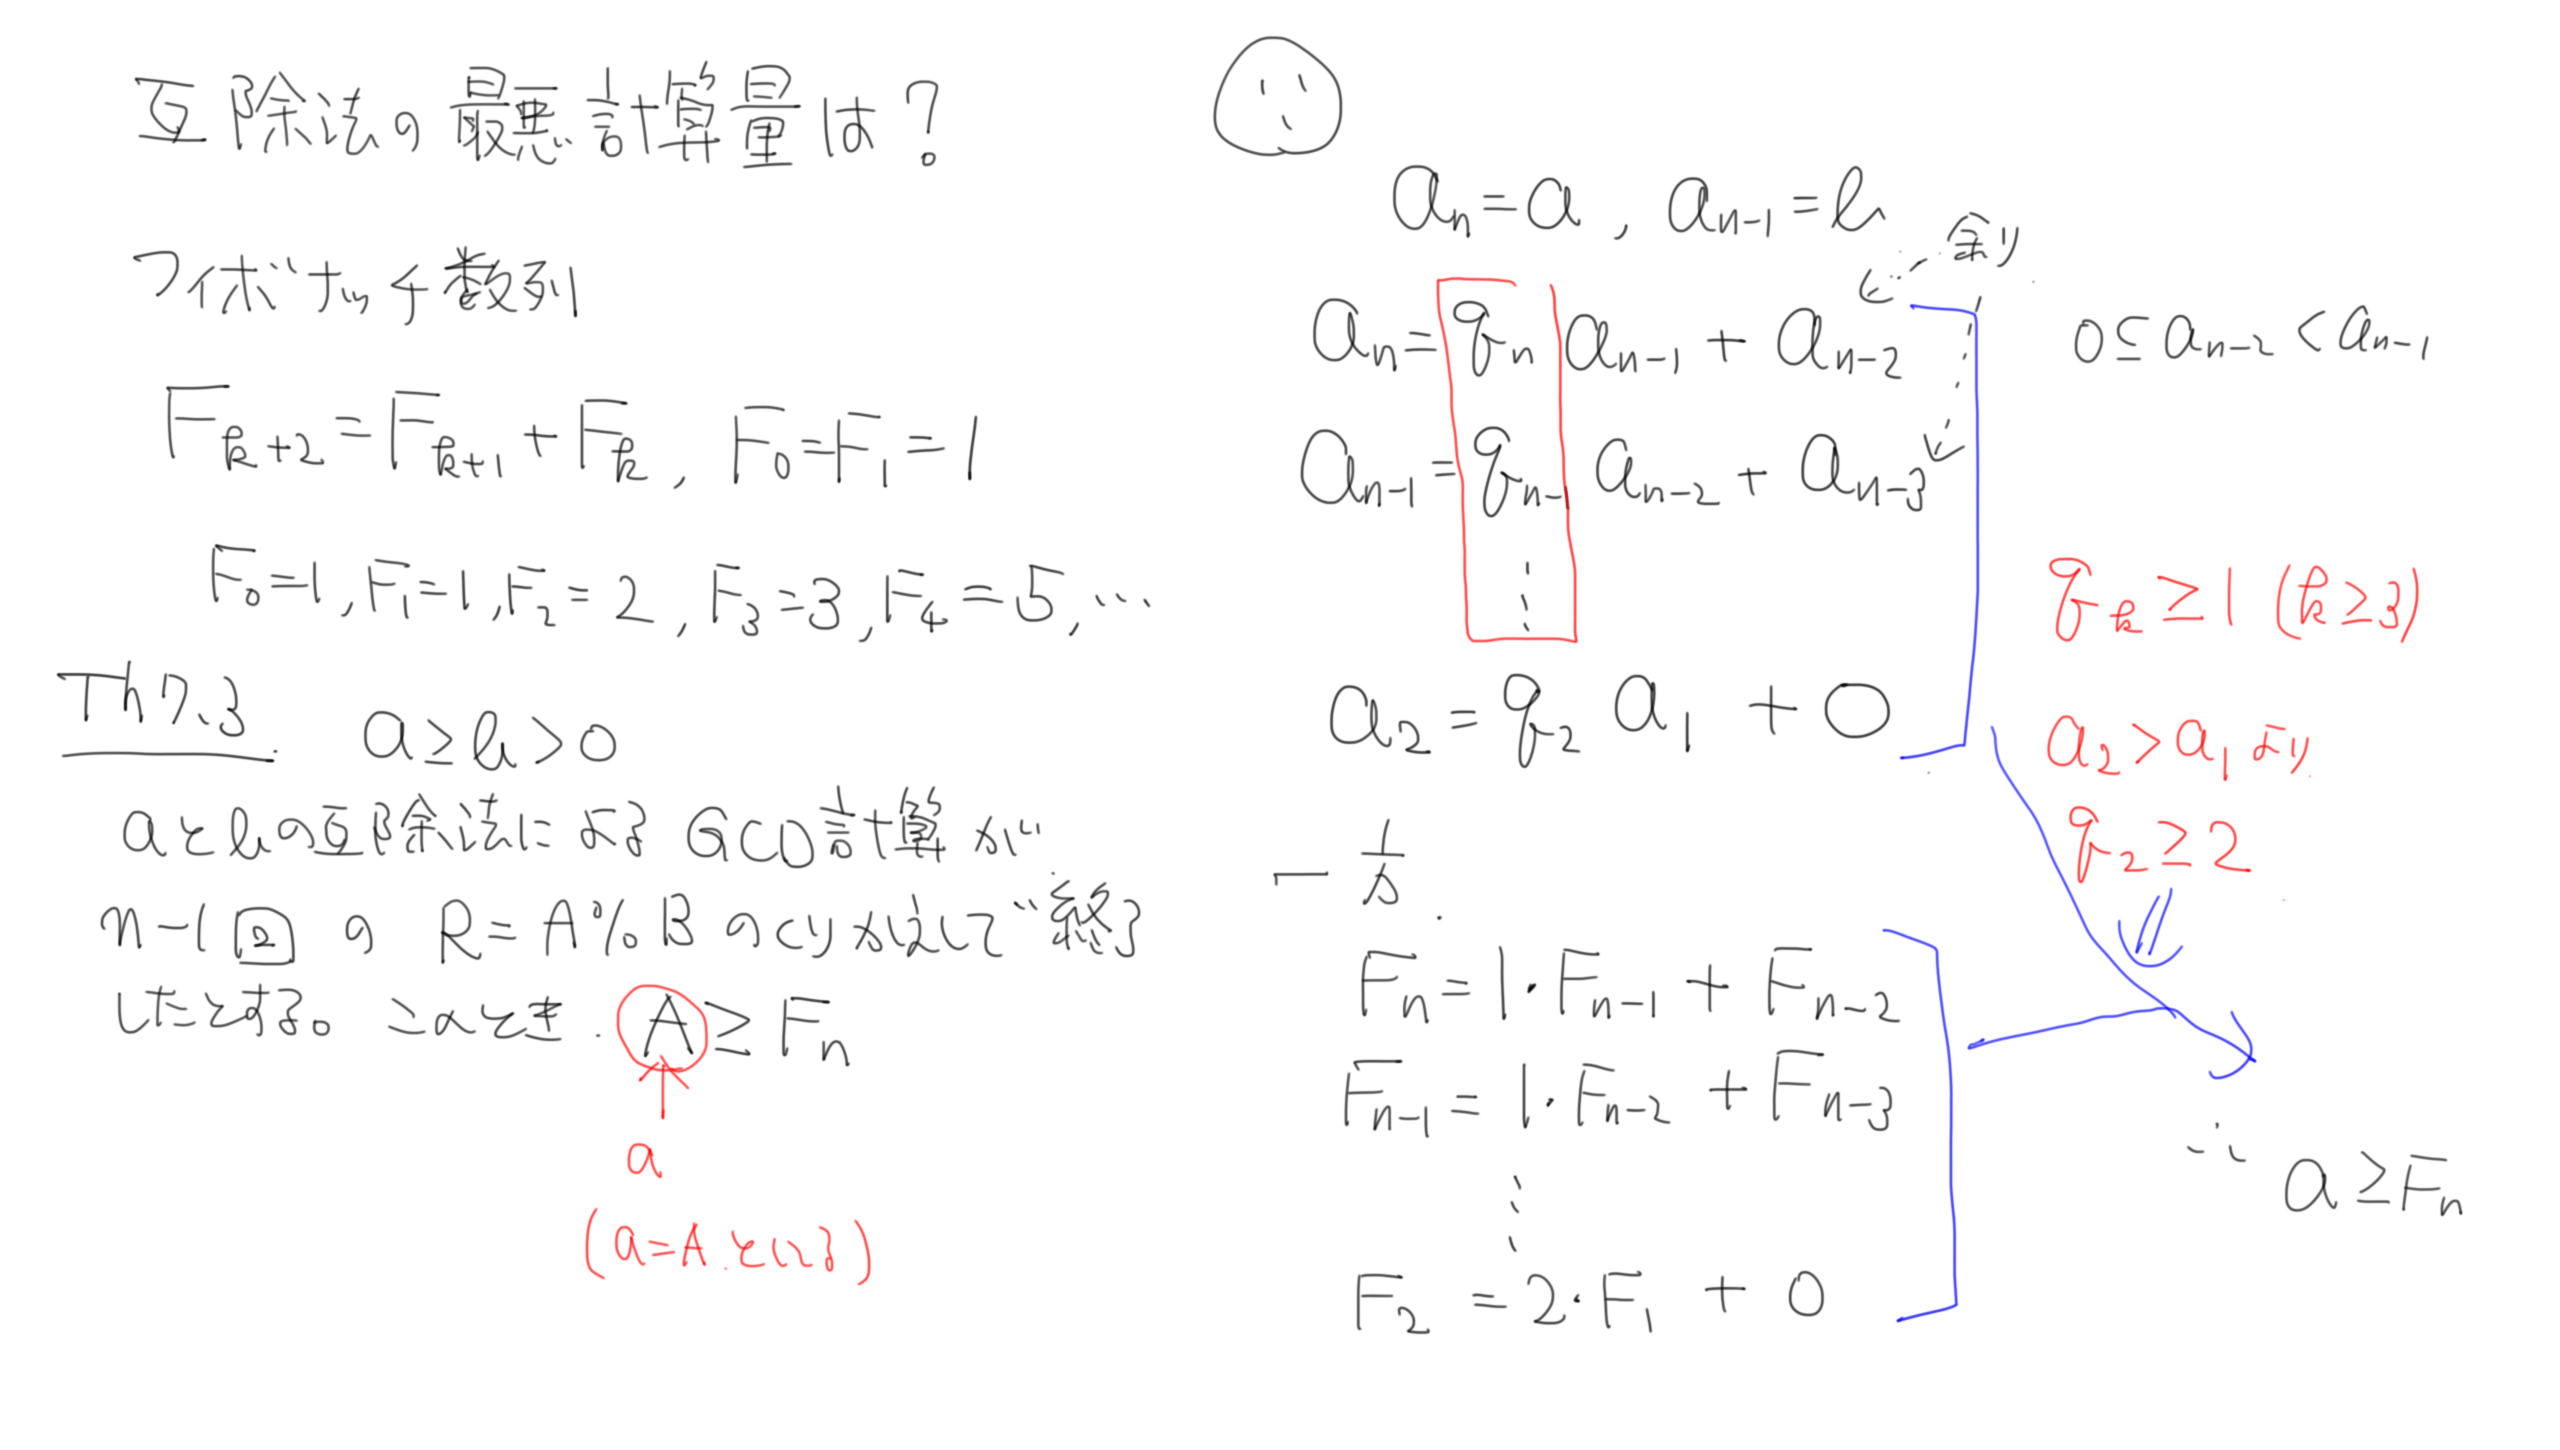 互除法の最悪計算量は?
フィボナッチ数列
F_{k+2} = F_{k+1} + F_k , F_0 = F_1 = 1
F_0=1, F_1=1, F_2=2, F_3=3, F_4=5, …
Th 7.3 a ≥ b > 0
aとbの互除法による GCD計算が
n-1回の R = A % B のくりかえしで終了
したとする。このとき A ≥ F_n
a
(a=A としている)
∵
a_n = a , a_{n-1} = b
余り
a_n = q_n a_{n-1} + a_{n-2} 0 ≤ a_{n-2} < a_{n-1}
a_{n-1} = q_{n-1} a_{n-2} + a_{n-3}
⋮
q_k ≥ 1 (k ≥ 3)
a_2 = q_2 a_1 + 0
a_2 > a_1 より
q_2 ≥ 2
一方
F_n = 1・F_{n-1} + F_{n-2}
F_{n-1} = 1・F_{n-2} + F_{n-3}
⋮
F_2 = 2・F_1 + 0
∴ a ≥ F_n